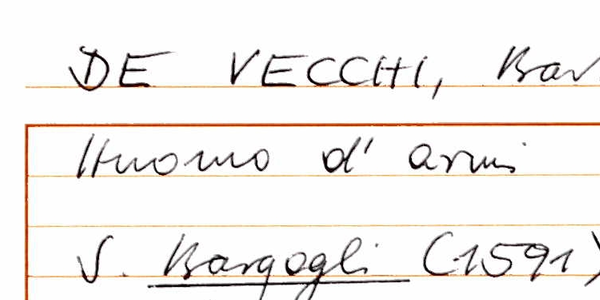 DE VECCHI,
Huomo d' armi
V. Bargagli (1591)